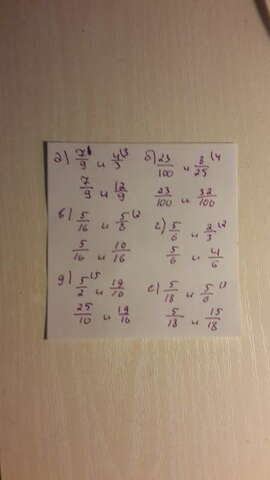 а) 7/9 и 4/3 (3 б) 23/100 и 3/25 (4
7/9 и 12/9 23/100 и 32/100
в) 5/16 и 5/8 (2 г) 5/6 и 2/3 (2
5/16 и 10/16 5/6 и 4/6
д) 5/2 (5 и 19/10 е) 5/18 и 5/6
25/10 и 19/10 5/18 и 15/18